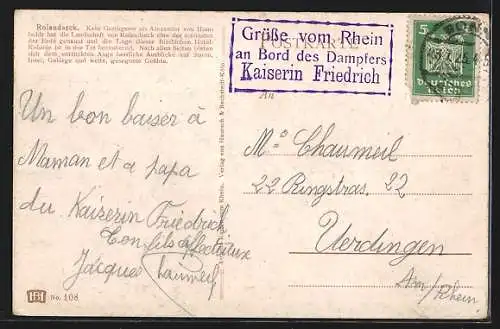 Rolandseck. Kein Geringerer als Alexander von Hum-
boldt hat die Landschaft von Rolandseck eine der schönsten
der Erde genannt und die Lage dieser friedlichen Hotel-
Kolonie ist in der Tat beneidenswert. Nach allen Seiten bieten
sich dem Auge herrliche Ausblicke auf Strom,
Insel, Gebirge und weite, gesegnete Gefilde.
POSTKARTE
Grüße vom Rhein
an Bord des Dampfers
Kaiserin Friedrich
5
Deutsches
Reich
An
Un bon baiser à
Maman et a papa
du Kaiserin Friedrich
Ton fils affectueux
Jacques Chaumeil
No. 108
Mr Chaumeil
22 Ringstras. 22
Uerdingen
Am/Rhein